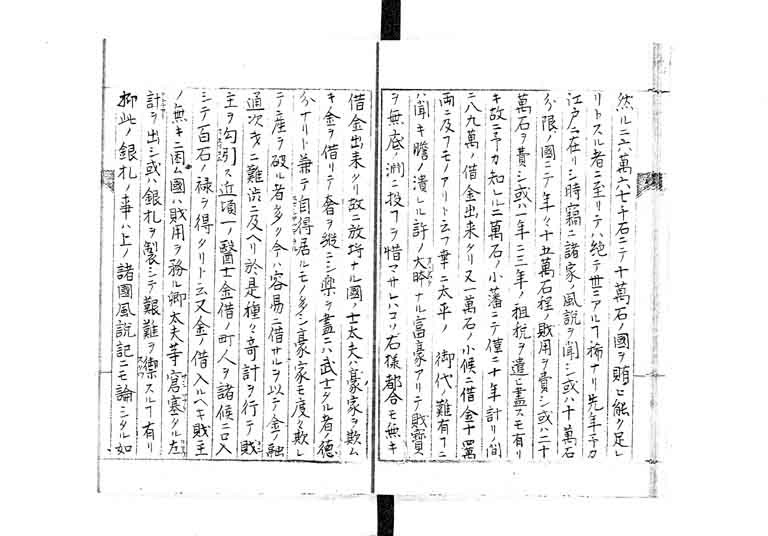 然ルニ六萬六七千石ニテ十萬石ノ國ヲ賄ヒ能ク足レ
リトスル者ニ至リテハ絶テ世ニアルヿ稀ナリ先年予カ
江戸ニ在リシ時竊ニ諸家ノ風説ヲ聞シニ或ハ十萬石
分限ノ國ニテ年々十五萬石程ノ財用ヲ費シ或ハ二十
萬石ヲ費シ或ハ一年ニ三年ノ租税ヲ遣ヒ盡スモ有リ
キ故ニ予カ知レル二萬石ノ小藩ニテ僅二十年計リノ間
ニ八九萬ノ借金出来タリ又一萬石ノ小候ニ借金十四萬
両ニ及フモノアリト云フ華ニ太平ノ 御代ノ難有フニ
ハ聞キ膽ノ潰レル許ノ大胯ナル富豪アリテ財寶
ヲ無底ノ淵ニ投フヲ惜マサレハコソ右様都合モ無キ
借金出来タリ故ニ放埓ナル國ノ士太夫ハ豪家ヲ欺ム
キ金ヲ借リテ奢ヲ縦ニシ楽ヲ盡ニハ武士タル者ノ徳
分ナリト兼テ自得居ルモノ多シ豪家モ度々欺レ
テ産ヲ破ル者多ク今ハ容易ニ借サルヲ以テ金ノ融
通次第ニ難渋ニ及ヘリ於是種々竒計ヲ行テ財
主ヲ勾引ス近頃一ノ醫士金借ノ町人ヲ諸候ニ口入
シテ百石ノ禄ヲ得タリト云又金ノ借入ルヘキ財主
ノ無キニ困ム國ハ財用ヲ務ル卿太夫等窘塞タル左
計ヲ出シ或ハ銀札ヲ製シテ艱難ヲ禦スルヿ有リ
抑此ノ銀札ノ事ハ上ノ諸國風説記ニモ論シタル如